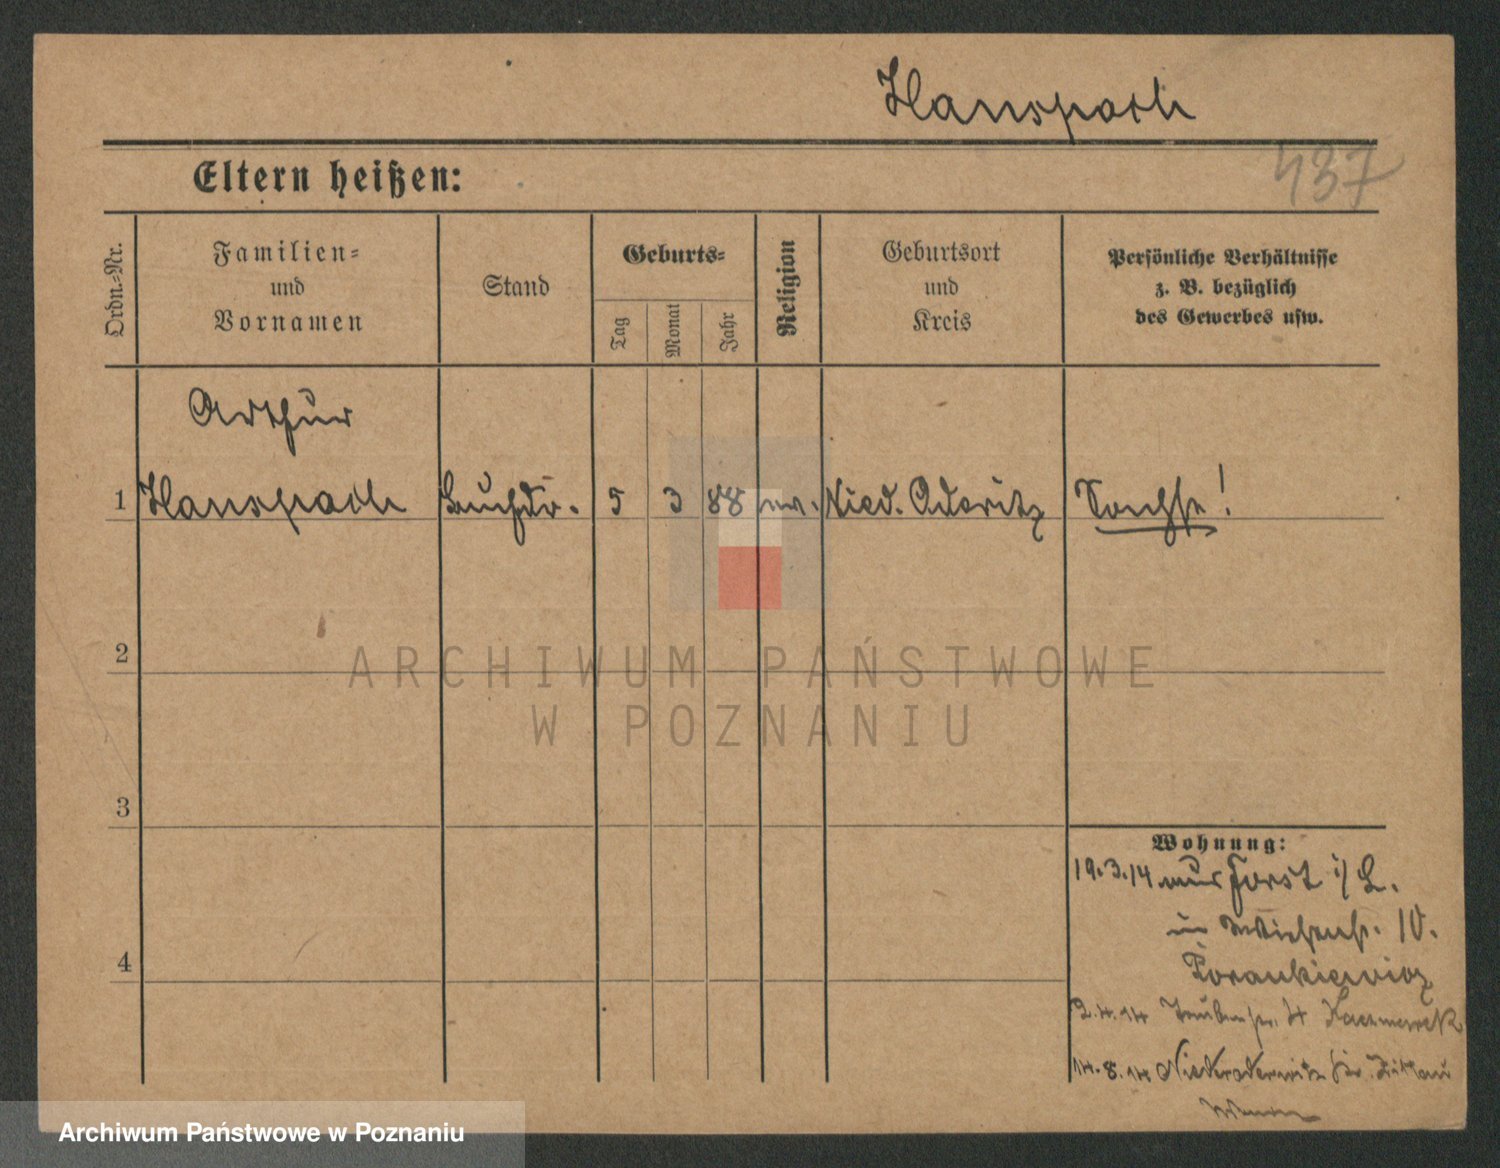 Hanspach
437
Eltern heißen:
Ordn.-Nr.
Familien-
und
Vornamen
Stand
Geburts-
Tag
Monat
Jahr
Religion
Geburtsort
und
Kreis
Persönliche Verhältnisse
z. B. bezüglich
des Gewerbes usw.
Arthur
1 Hanspach Buchdr. 5 3 88 ev. Nied. Oderitz Sachse!
2
3
4
Wohnung:
19.3.14 aus Forst i/L.
in Wiesenstr. 10.
Porankiewicz
2.4.14 Taubenstr. 4 Kaczmarek
14.8.14 Niederoderwitz Kr. Zittau
ARCHIWUM PAŃSTWOWE
W POZNANIU
Archiwum Państwowe w Poznaniu